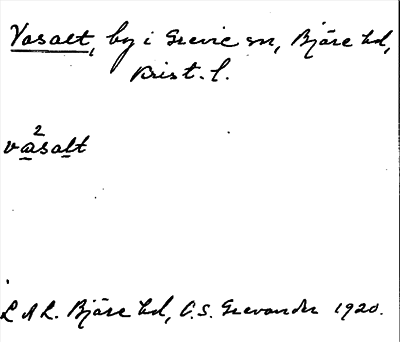 Vasalt, by i Grevie sn, Bjäre hd,
Krist. l.
2
vasalt
L A L. Bjäre hd, C.S. Grevander 1920.